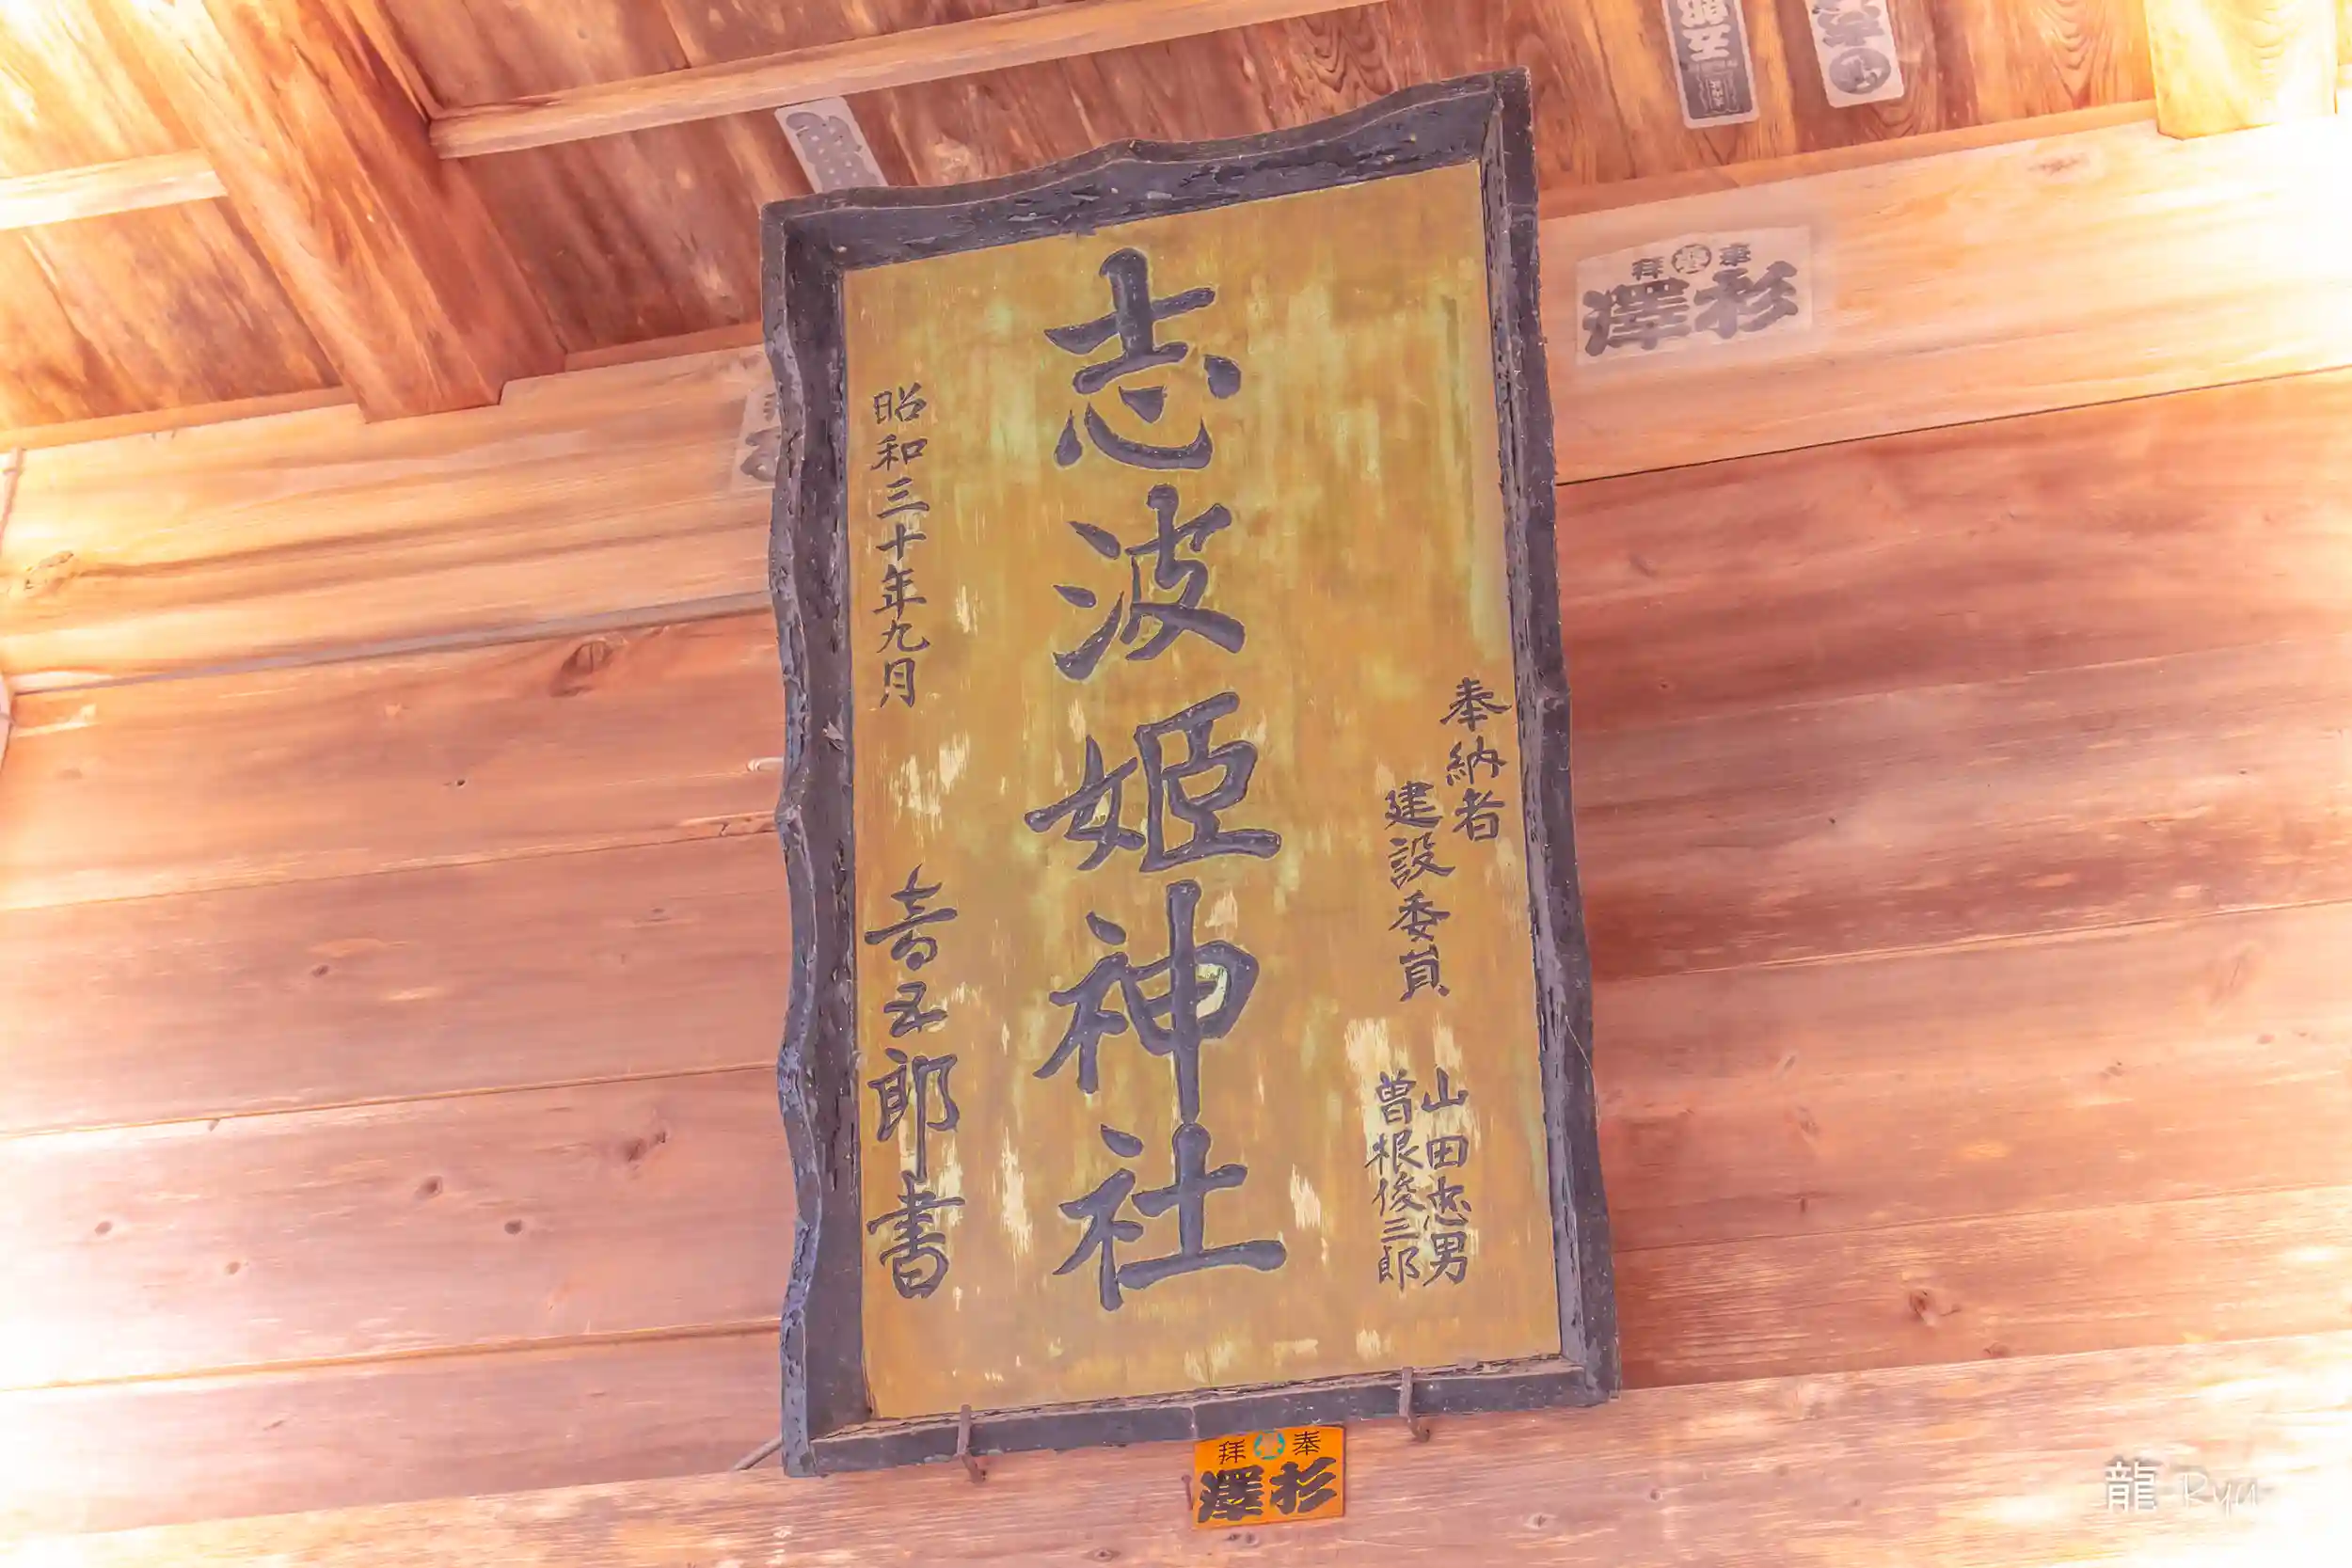 志波姫神社
奉納者
建設委員
山田忠男
曽根俊三郎
昭和三十年九月
音五郎書
奉拝
杉澤
奉拝
杉澤
龍 Ryu